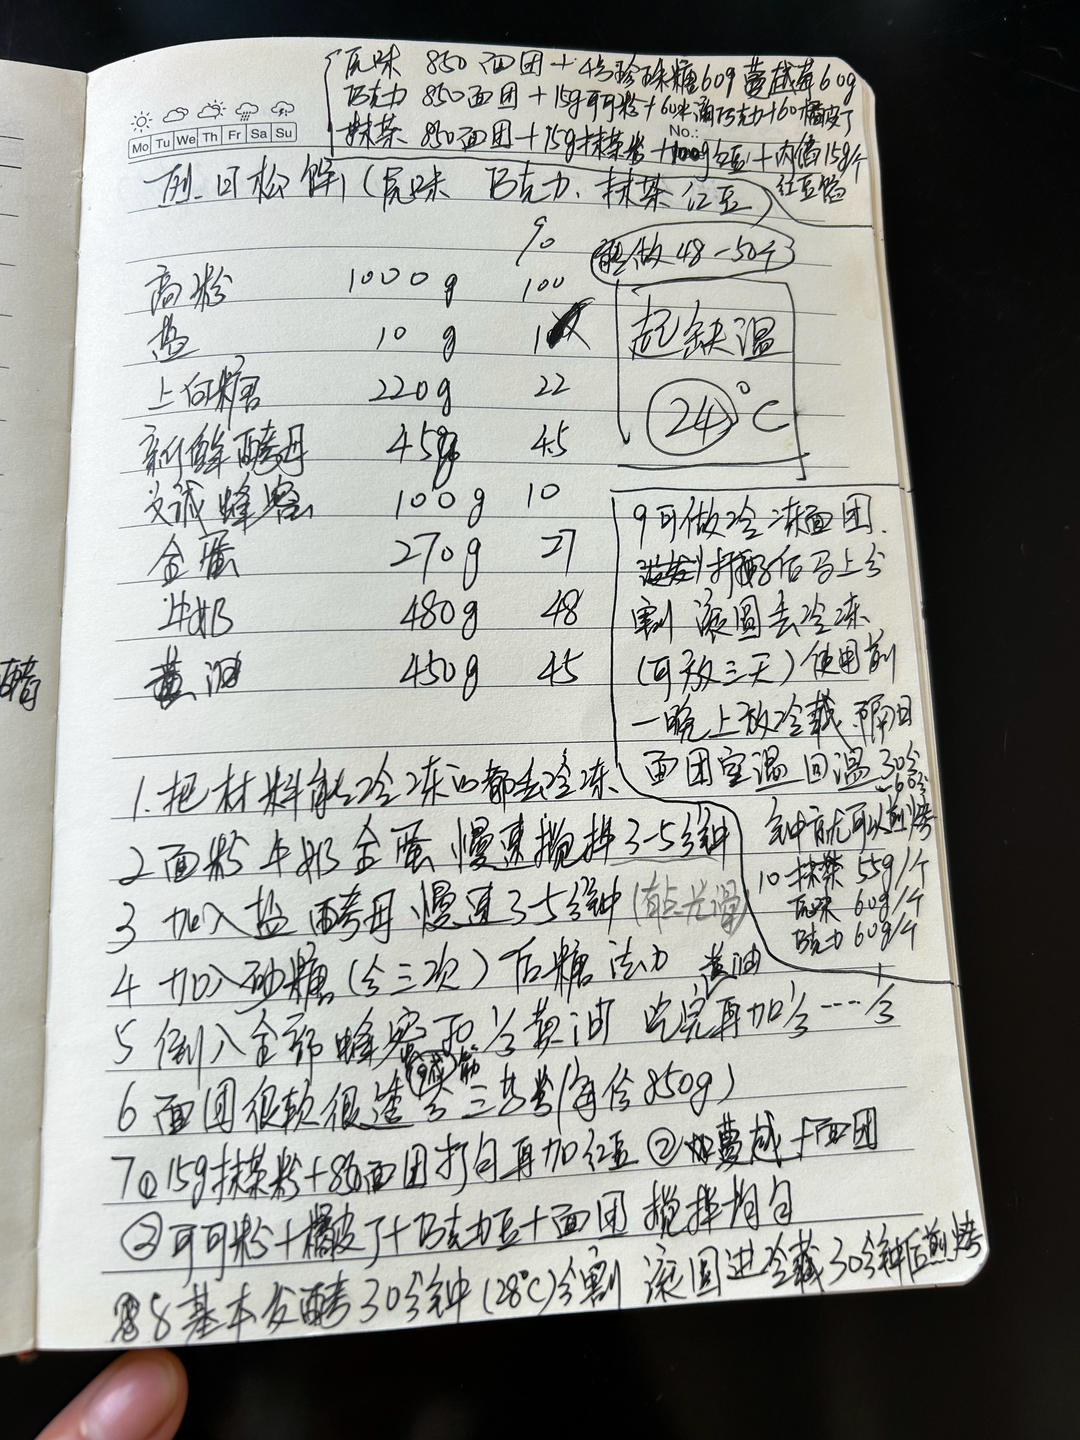 原味 850面团+4号珍珠糖60g 蔓越莓60g
巧克力 850面团+15g可可粉+60水滴巧克力+60橘皮丁
抹茶 850面团+15g抹茶粉+100g红豆+内馅15g/个
红豆馅
Mo Tu We Th Fr Sa Su
No.:
一烈日松饼(原味 巧克力.抹茶 红豆)
%
能做48-50个
高粉 1000g 100
盐 10g 1
上白糖 220g 22
新鲜酵母 45g 4.5
蜂蜜 100g 10
全蛋 270g 27
牛奶 480g 48
黄油 450g 45
起缸温
24°C
9可做冷冻面团.
打好后马上分
割 滚圆去冷冻
(可放三天)使用前
一晚上放冷藏.隔日
面团室温回温30分
-60分
钟就可以煎烤
10 抹茶 55g/个
原味 60g/个
巧克力 60g/个
1.把材料能冷冻的都去冷冻
2 面粉 牛奶 全蛋 慢速搅拌3-5分钟
3 加入盐 酵母 慢速3-5分钟(有点光滑)
4 加入砂糖(分三次)后糖法
黄油
5 倒入全部蜂蜜和⅓黄油 吃完再加⅓----⅓
6 面团很软很 分三等份(每份850g)
7① 15g抹茶粉+850面团打匀再加红豆 ②加蔓越+面团
②可可粉+橘皮丁+巧克力豆+面团 搅拌均匀
8 基本发酵30分钟(28°C)分割 滚圆进冷藏30分钟后煎烤